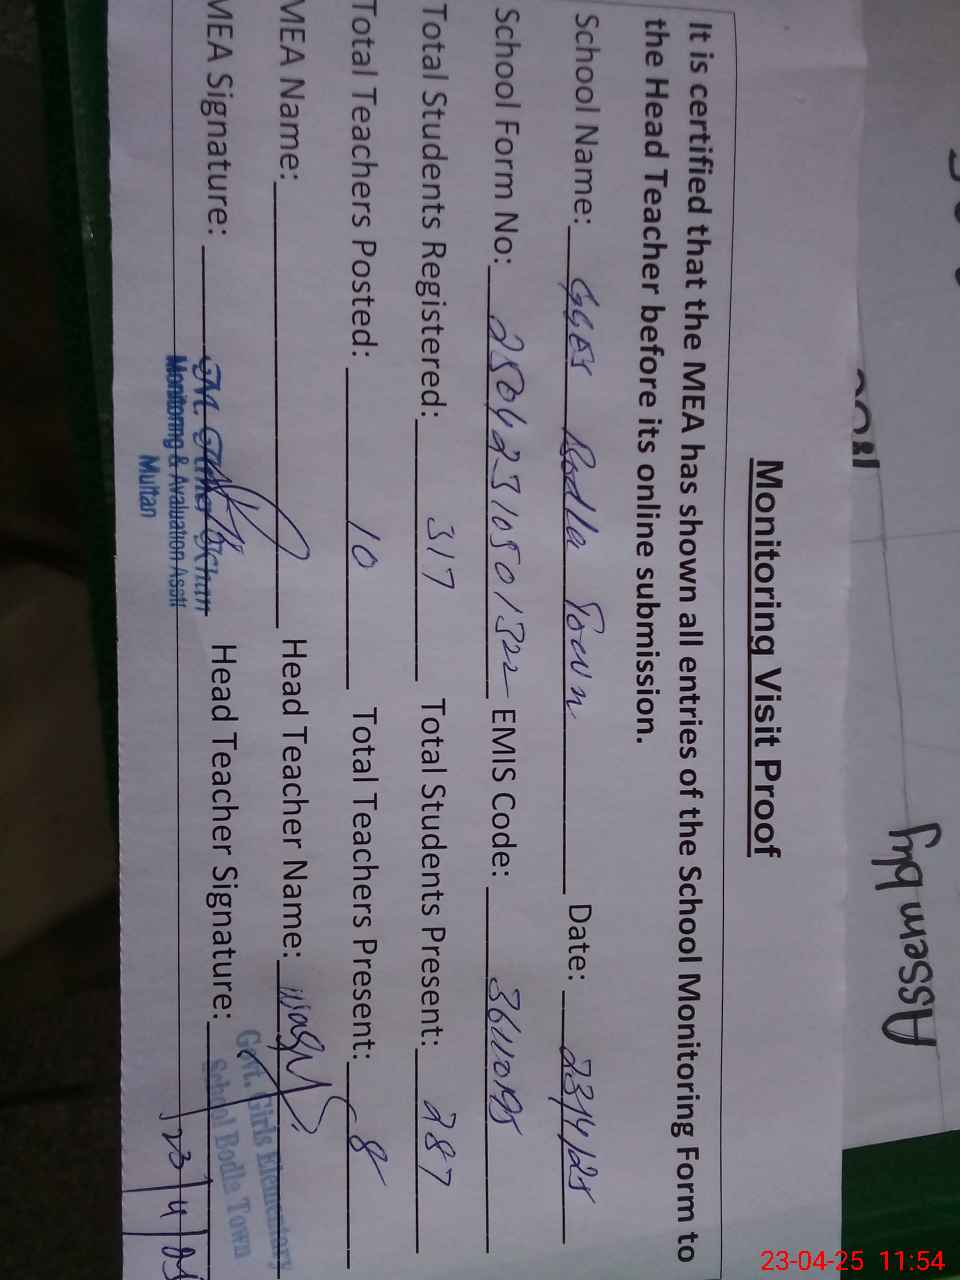 Assembly
Monitoring Visit Proof
It is certified that the MEA has shown all entries of the School Monitoring Form to
the Head Teacher before its online submission.
School Name: GGES Bodla Town Date: 23/4/25
School Form No: 25042310501322 EMIS Code:
Total Students Registered: 317 Total Students Present: 287
Total Teachers Posted: 10 Total Teachers Present: 8
MEA Name: Head Teacher Name:
MEA Signature: Head Teacher Signature:
Monitoring & Avaluation Asstt
Multan
Govt. Girls Elementary
School Bodla Town
23 4 25
23-04-25 11:54